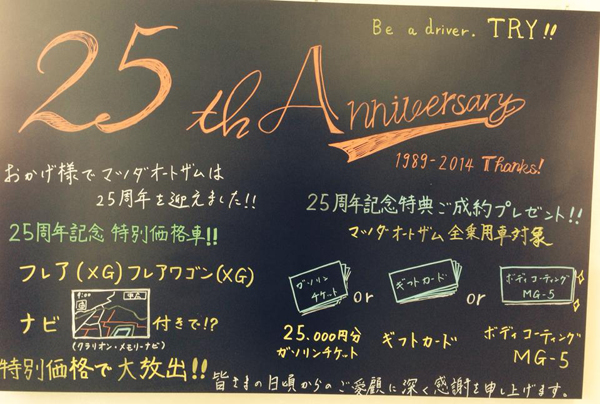 Be a driver. TRY!!
25th Anniversary
1989-2014 Thanks!
おかげ様でマツダオートザムは
25周年を迎えました!!
25周年記念 特別価格車!!
フレア(XG)フレアワゴン(XG)
ナビ
付きで!?
(クラリオン・メモリーナビ)
特別価格で大放出!!
25周年記念特典ご成約プレゼント!!
マツダオートザム全乗用車対象
ガソリン
チケット
or
ギフトカード
or
ボディコーティング
MG-5
25.000円分
ガソリンチケット
ギフトカード
ボディコーティング
MG-5
皆さまの日頃からのご愛顧に深く感謝を申し上げます。